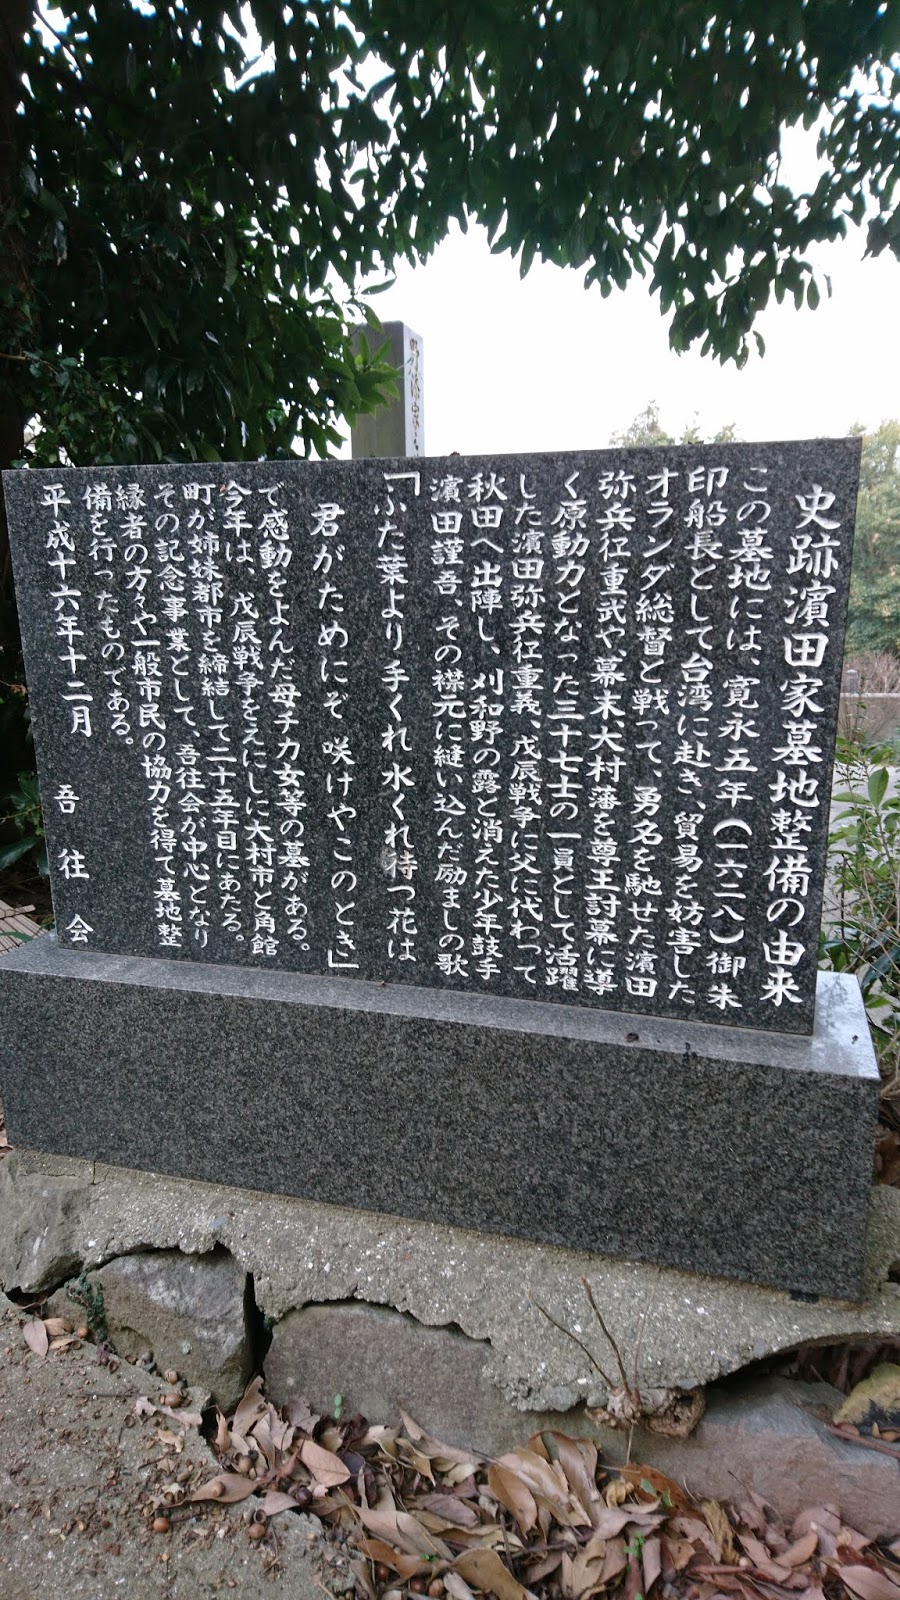 史跡濱田家墓地整備の由来
この墓地には、寛永五年（一六二八）御朱
印船長として台湾に赴き、貿易を妨害した
オランダ総督と戦って、勇名を馳せた濱田
弥兵衛重武や、幕末、大村藩を尊王討幕に導
く原動力となった三十七士の一員として活躍
した濱田弥兵衛重義、戊辰戦争に父に代わって
秋田へ出陣し、刈和野の露と消えた少年鼓手
濱田謹吾、その襟元に縫い込んだ励ましの歌
「ふた葉より手くれ水くれ待つ花は
君がためにぞ咲けやこのとき」
で感動をよんだ母チカ女等の墓がある。
今年は、戊辰戦争をえにしに大村市と角館
町が姉妹都市を締結して二十五年目にあたる。
その記念事業として、吾往会が中心となり
縁者の方々や一般市民の協力を得て墓地整
備を行ったものである。
平成十六年十二月　吾往会